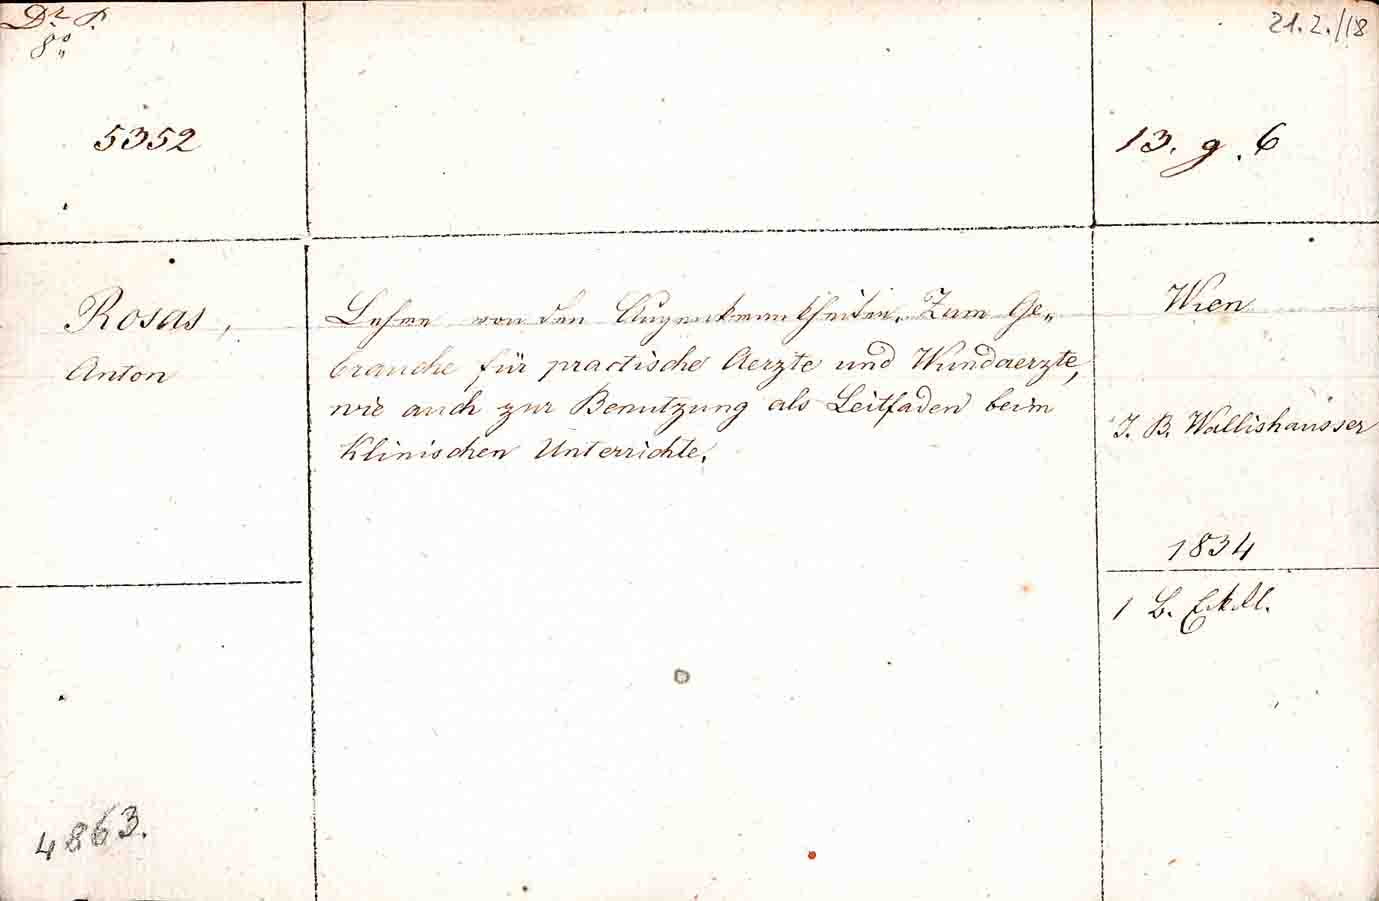 Dr. P.
8°
21. 2./18
5352
13. g. 6
Rosas,
Anton
Lehre von den Augenkrankheiten. Zum Ge„
brauche für practische Aerzte und Wundaerzte,
wie auch zur Benutzung als Leitfaden beim
Klinischen Unterrichte.
Wien
J. B. Wallishausser
1834
1 B.
4863.